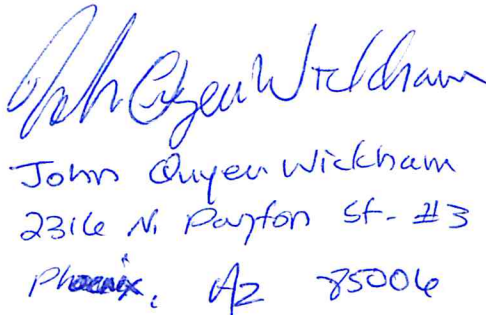 John Quyen Wickham
John Quyen Wickham
2316 N. Payton St- #3
Phoenix, AZ 85006